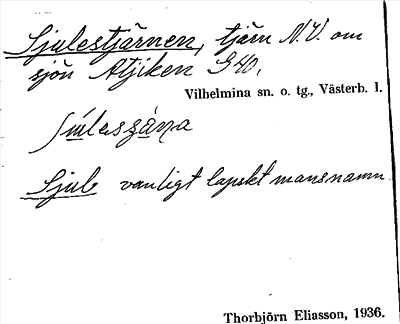 Sjulestjärnen, tjärn N.V. om
sjön Atjiken S 40.
Vilhelmina sn. o. tg., Västerb. l.
Sjul vanligt lapskt mansnamn
Thorbjörn Eliasson, 1936.